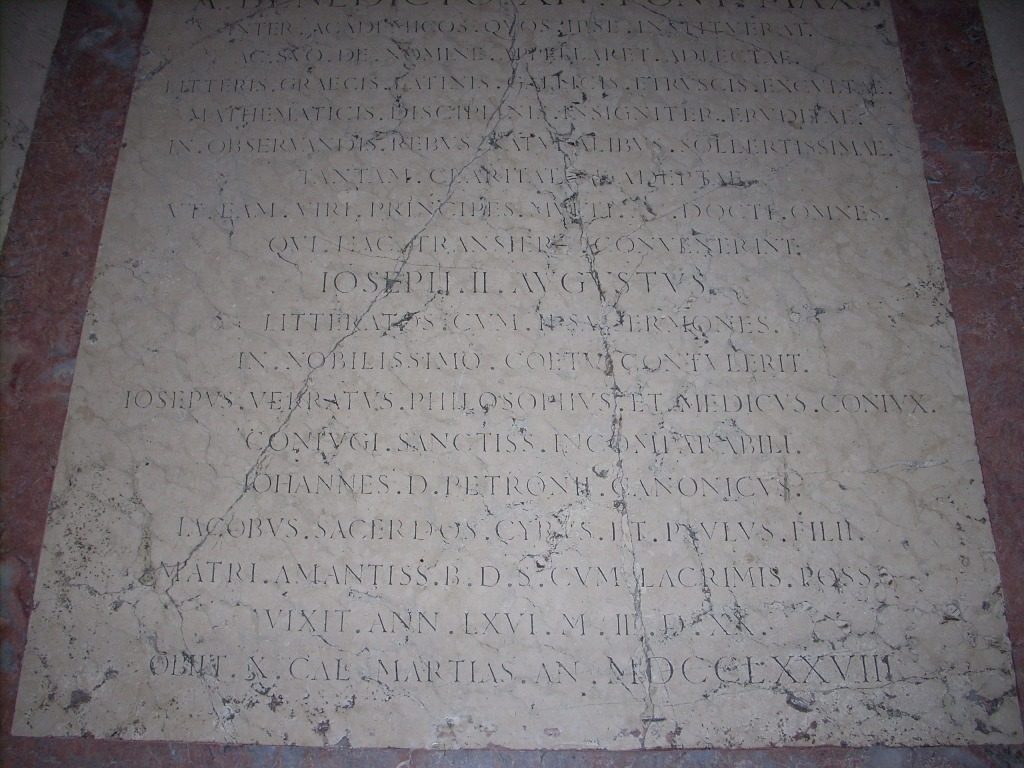 A. BENEDICTO. XIV. PONT. MAX.
INTER. ACADEMICOS. QUOS. IPSE. INSTITVERAT.
AC. SVO. DE. NOMINE. APPELLARET. ADLECTAE.
LITTERIS. GRAECIS. LATINIS. GALLICIS. ETRVSCIS. EXCVLTAE.
MATHEMATICIS. DISCIPLINIS. INSIGNITER. ERVDITAE.
IN. OBSERVANDIS. REBVS. NATVRALIBVS. SOLLERTISSIMAE.
TANTAM. CLARITATEM. ADEPTAE.
VT. EAM. VIRI. PRINCIPES. MVLTI. DOCTI. OMNES.
QVI. HAC. TRANSIER. CONVENERINT.
IOSEPH. II. AVGVSTVS.
LITTERATOS. CVM. IPSA. SERMONES.
IN. NOBILISSIMO. COETV. CONTVLERIT.
IOSEPVS. VERRATVS. PHILOSOPHVS. ET. MEDICVS. CONIVX.
CONIVGI. SANCTISS. INCOMPARABILI.
IOHANNES. D. PETRONII. CANONICVS.
IACOBVS. SACERDOS. CYRVS. ET. PAVLVS. FILII.
MATRI. AMANTISS. B. D. S. CVM. LACRIMIS. POSS.
VIXIT. ANN. LXVI. M. III. D. XX.
OBIIT. X. CAL. MARTIAS. AN. MDCCLXXVIII.